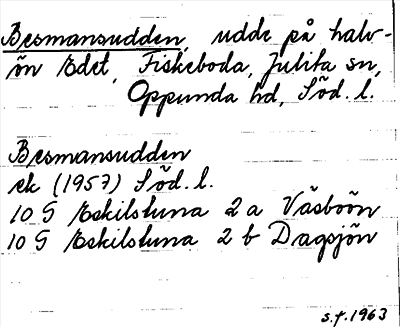 Besmansudden, udde på halv-
ön Edet, Fiskeboda, Julita sn,
Oppunda hd, Söd. l.
Besmansudden
ek (1957) Söd. l.
10 G Eskilstuna 2 a Väsbyön
10 G Eskilstuna 2 b Dagsjön
s.f. 1963